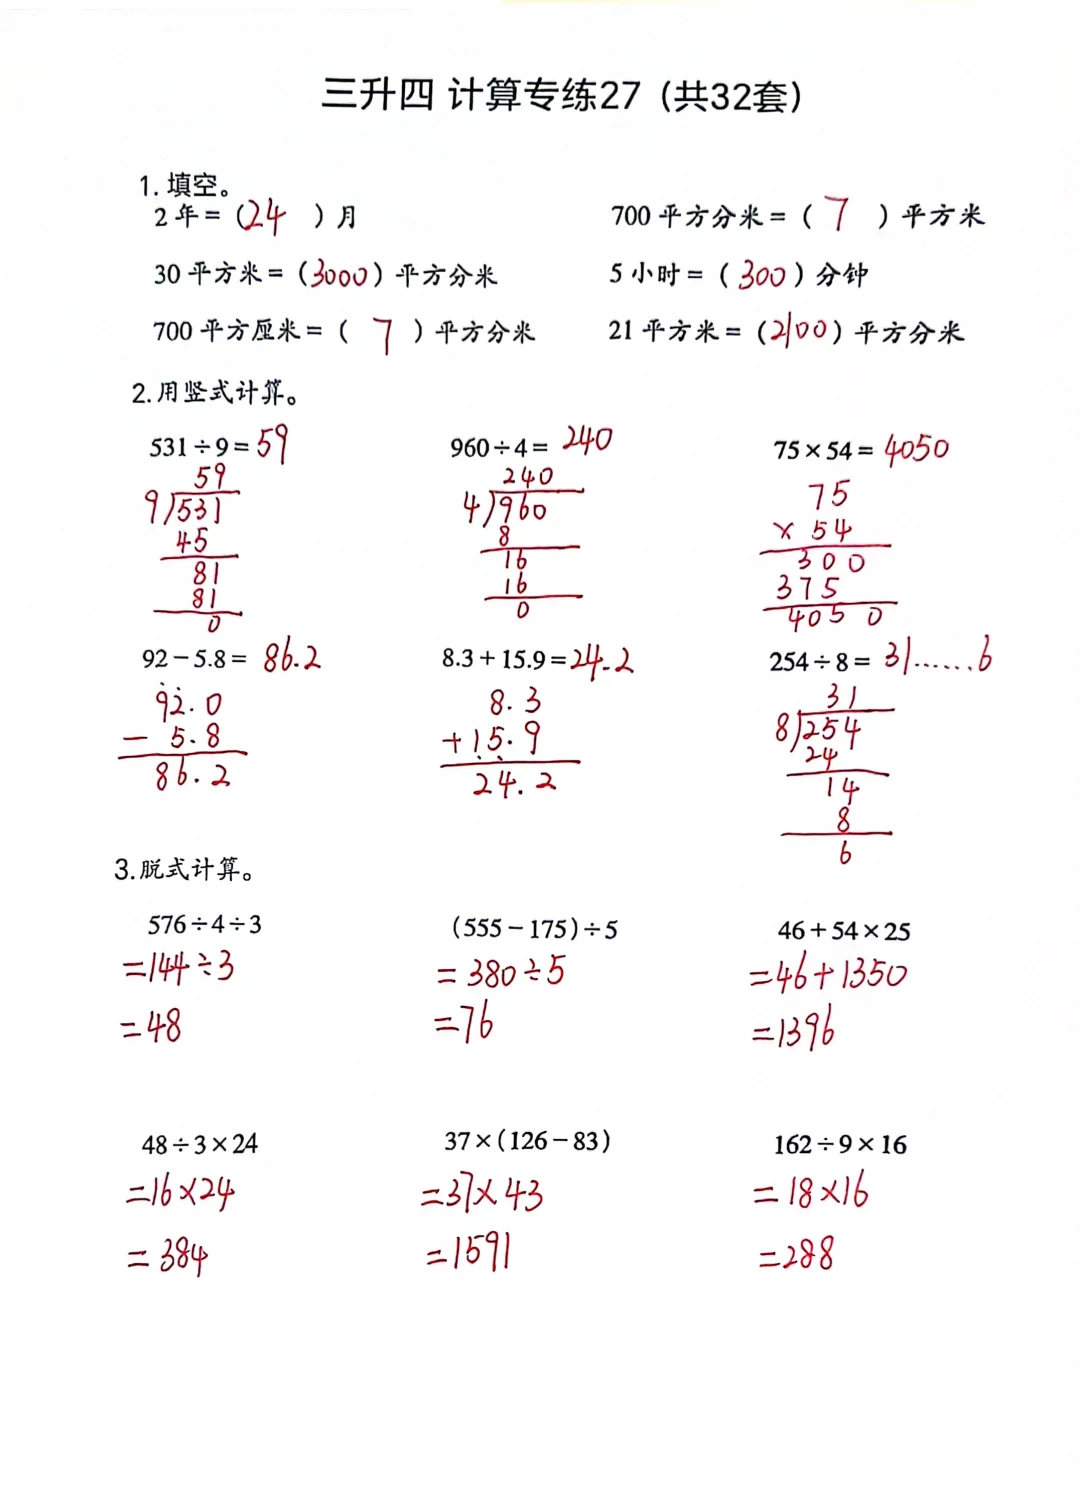 三升四 计算专练27（共32套）
1. 填空。
2 年=（24）月 700 平方分米=（7）平方米
30 平方米=（3000）平方分米 5 小时=（300）分钟
700 平方厘米=（7）平方分米 21 平方米=（2100）平方分米
2.用竖式计算。
531÷9=59 960÷4=240 75×54=4050
59 240 75
9)531 4)960 ×54
45 8 300
81 16 375
81 16 4050
0 0
92-5.8=86.2 8.3+15.9=24.2 254÷8=31......6
92.0 8.3 31
-5.8 +15.9 8)254
86.2 24.2 24
14
8
6
3.脱式计算。
576÷4÷3 (555-175)÷5 46+54×25
=144÷3 =380÷5 =46+1350
=48 =76 =1396
48÷3×24 37×(126-83) 162÷9×16
=16×24 =37×43 =18×16
=384 =1591 =288